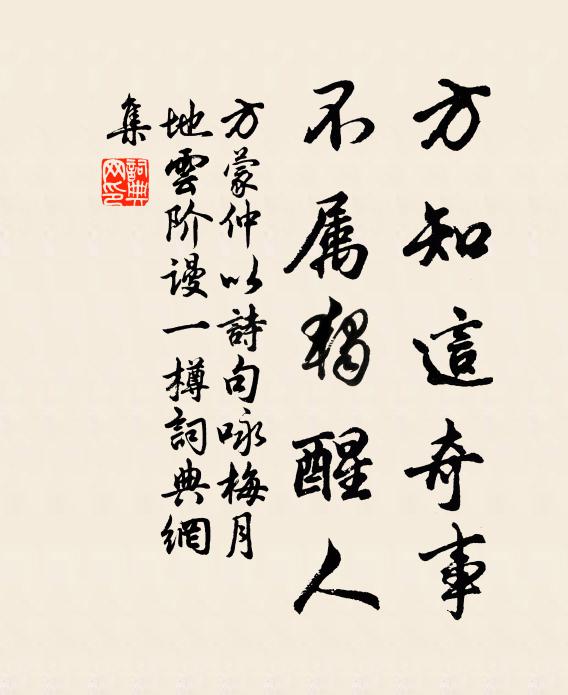 方知這奇事
不属獨醒人
方蒙仲以詩句咏梅月
地雲阶谩一樽詞典網
集
詞典網印